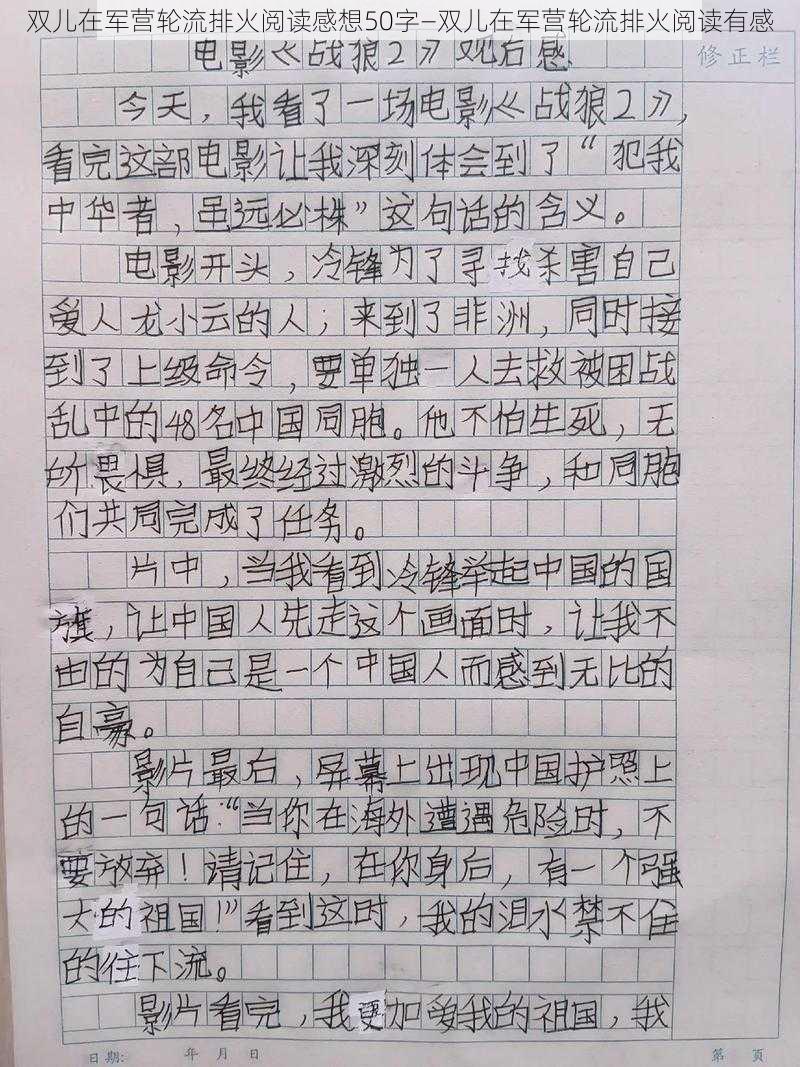 双儿在军营轮流排火阅读感想50字—双儿在军营轮流排火阅读有感
电影《战狼2》观后感
修正栏
今天，我看了一场电影《战狼2》，
看完这部电影让我深刻体会到了“犯我
中华者，虽远必株”这句话的含义。
电影开头，冷锋为了寻找杀害自己
爱人龙小云的人；来到了非洲，同时接
到了上级命令，要单独一人去救被困战
乱中的48名中国同胞。他不怕生死，无
所畏惧，最终经过激烈的斗争，和同胞
们共同完成了任务。
片中，当我看到冷锋举起中国的国
旗，让中国人先走这个画面时，让我不
由的为自己是一个中国人而感到无比的
自豪。
影片最后，屏幕上出现中国护照上
的一句话：“当你在海外遭遇危险时，不
要放弃！请记住，在你身后，有一个强
大的祖国！”看到这时，我的泪水禁不住
的往下流。
影片看完，我更加爱我的祖国，我
日期： 年 月 日 第 页